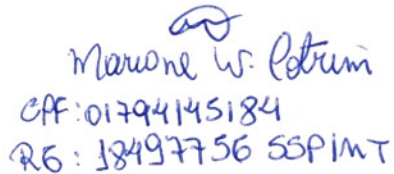 Marione W. Cotrim
CPF: 01794145184
RG: 18497756 SSP/MT